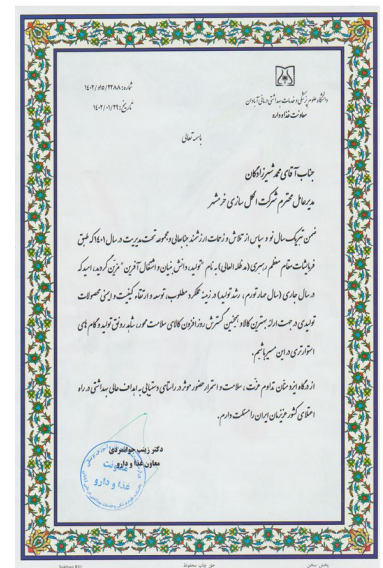 دانشگاه علوم پزشکی و خدمات بهداشتی درمانی آبادان
معاونت غذا و دارو
شماره: ۱۴۰۲/د۱۵/۲۲۸۸
تاریخ: ۱۴۰۲/۰۱/۲۹
باسمه تعالی
جناب آقای محمد شیرزادگان
مدیرعامل محترم شرکت الکل سازی خرمشهر
ضمن تبریک سال نو و سپاس از تلاش و زحمات ارزشمند جنابعالی و مجموعه تحت مدیریت در سال ۱۴۰۱ که طبق
فرمایشات مقام معظم رهبری (مدظله العالی) به نام "تولید، دانش بنیان و اشتغال آفرین" مزین گردید، امید که
در سال جاری (سال مهار تورم، رشد تولید) در زمینه عملکرد مطلوب، توسعه و ارتقاء کیفیت و ایمنی محصولات
تولیدی در جهت ارائه بهترین کالا و همچنین گسترش روزافزون کالای سلامت محور، شاهد رونق تولید و گام های
استوارتری در این مسیر باشیم.
از درگاه ایزد منان تداوم عزت، سلامت و استمرار حضور موثر در راستای دستیابی به اهداف عالی بهداشتی در راه
اعتلای کشور عزیزمان ایران را مسئلت دارم.
دکتر زینب جوانمردی
معاون غذا و دارو
معاونت
غذا و دارو
حق چاپ محفوظ
پخش سخن